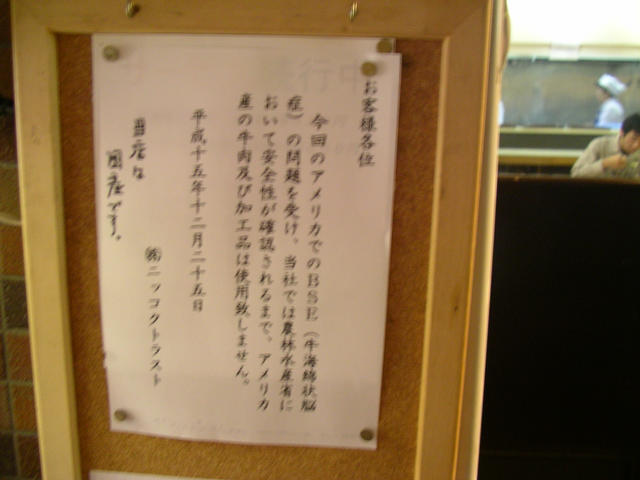 お客様各位
今回のアメリカでのBSE（牛海綿状脳
症）の問題を受け、当社では農林水産省に
おいて安全性が確認されるまで、アメリカ
産の牛肉及び加工品は使用致しません。
平成十五年十二月二十五日
㈱ニッコクトラスト
当店は
国産です。